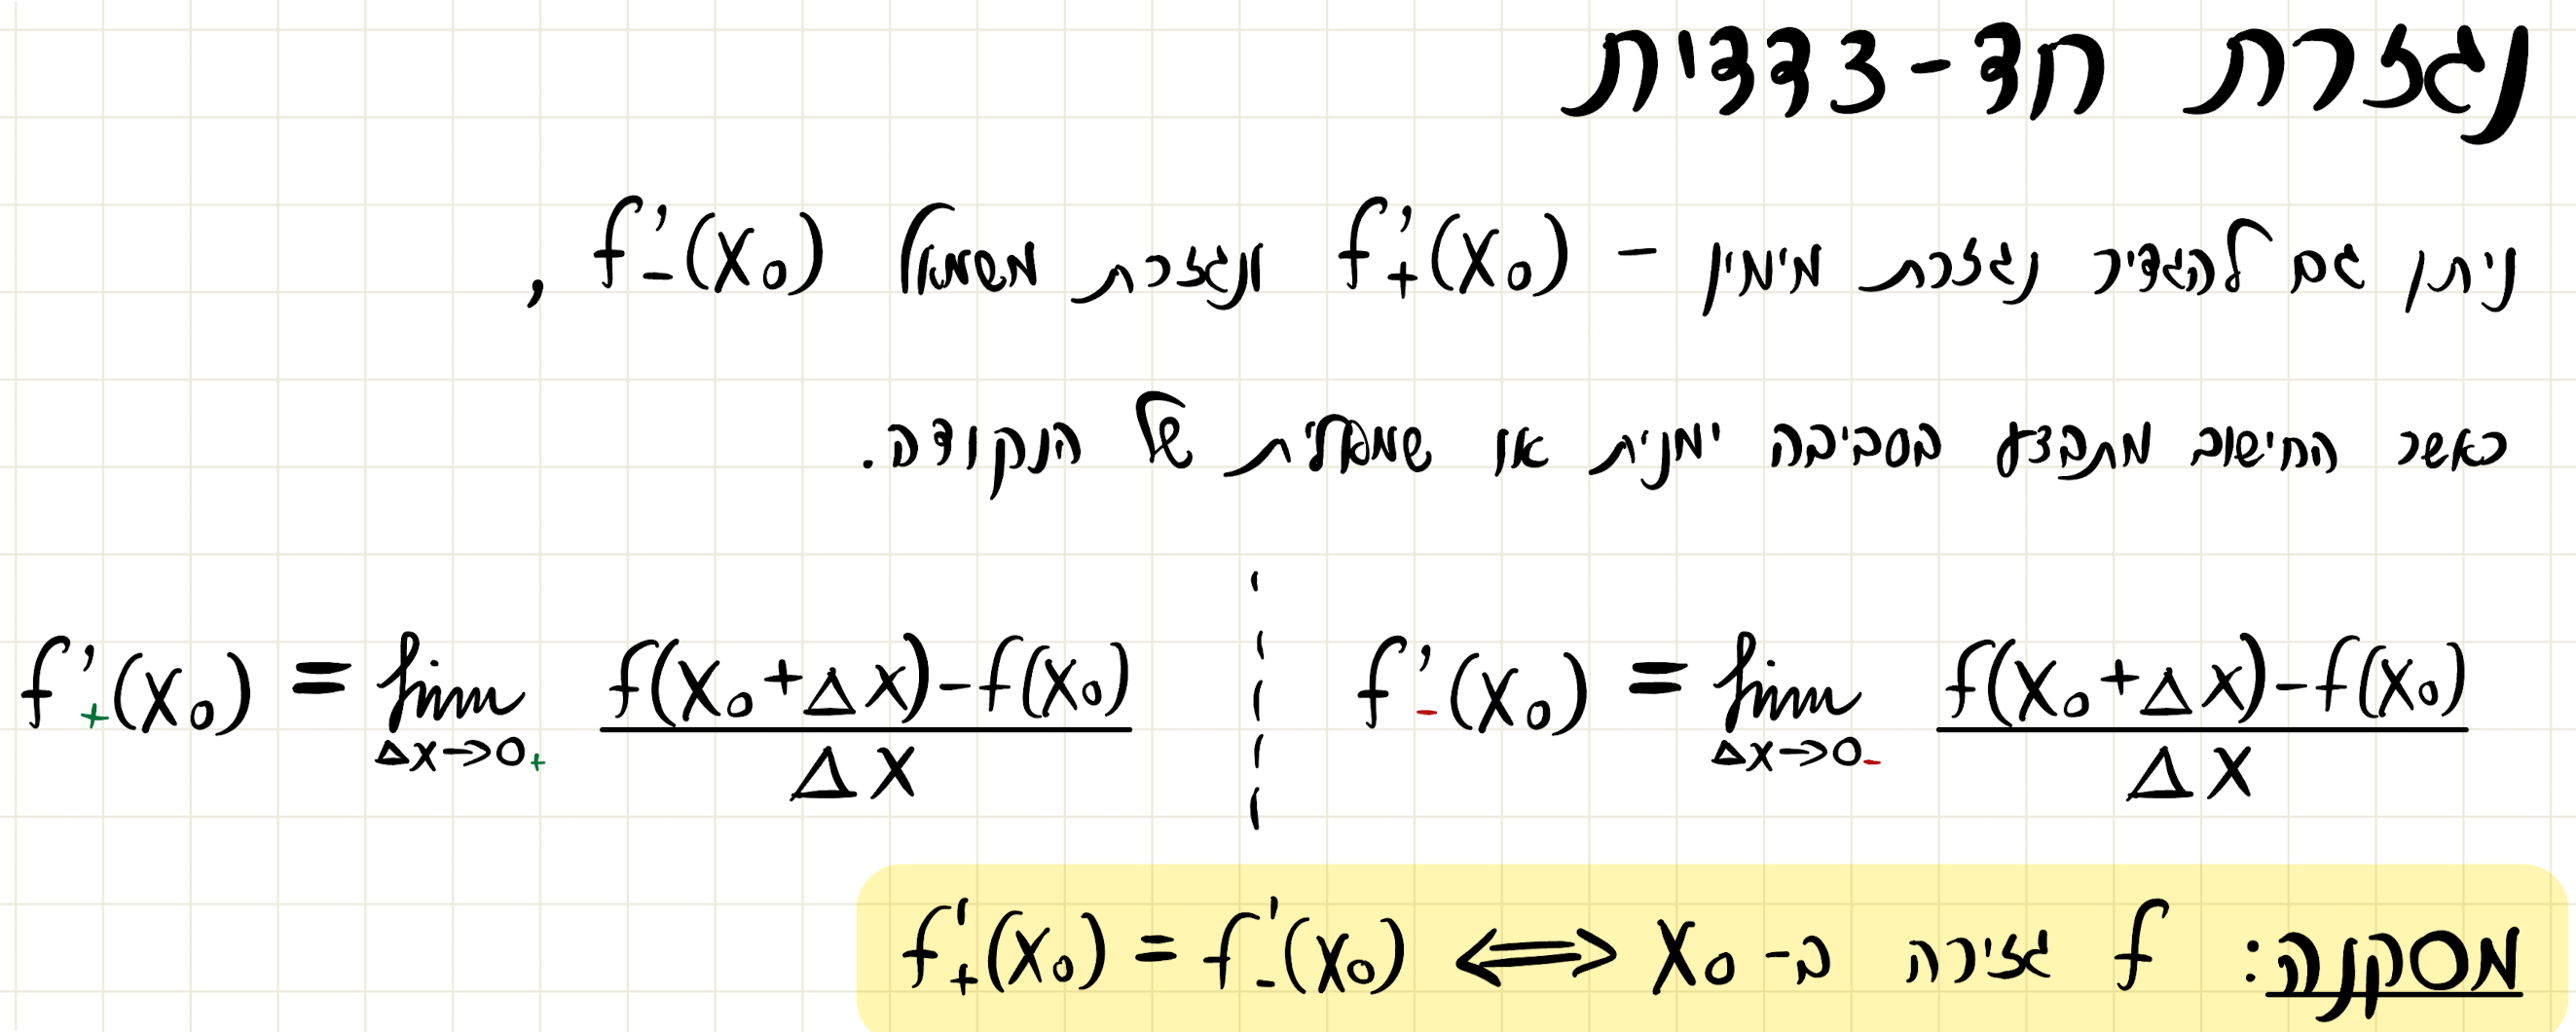 נגזרת חד-צדדית
ניתן גם להגדיר נגזרת מימין - f'₊(x₀) ונגזרת משמאל f'₋(x₀) ,
כאשר החישוב מתבצע בסביבה ימנית או שמאלית של הנקודה.
f'₊(x₀) = lim Δx→0₊ (f(x₀+Δx)-f(x₀))/Δx | f'₋(x₀) = lim Δx→0₋ (f(x₀+Δx)-f(x₀))/Δx
מסקנה: f גזירה ב- x₀ ⟺ f'₊(x₀) = f'₋(x₀)